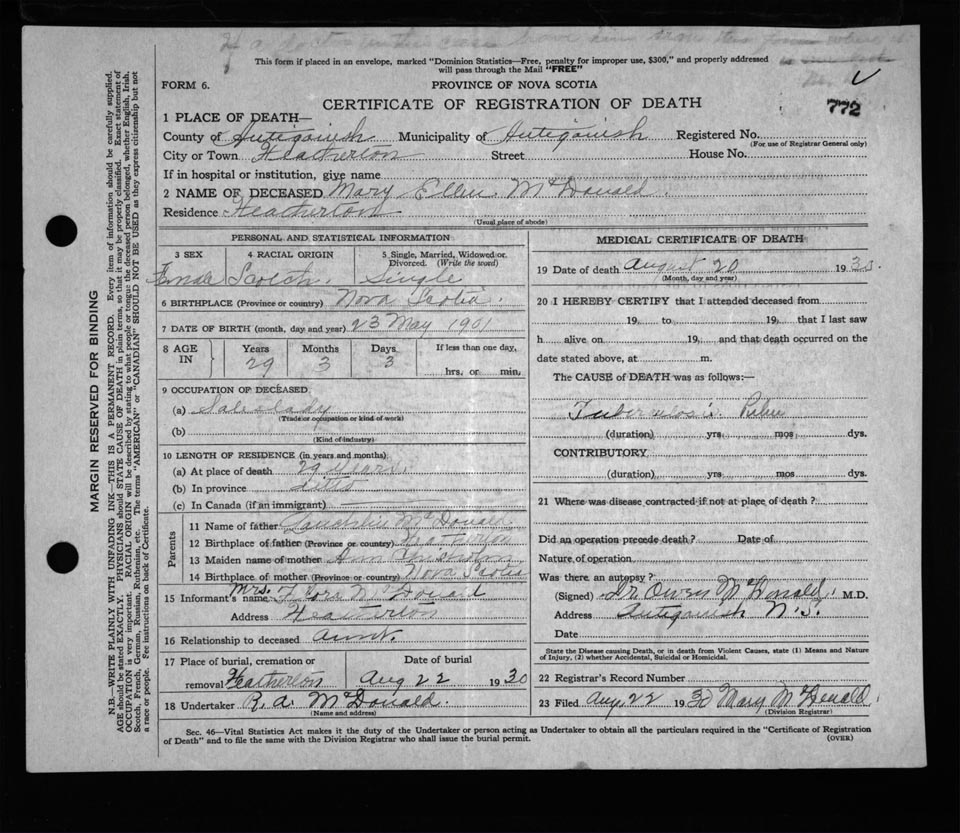 This form if placed in an envelope, marked "Dominion Statistics—Free, penalty for improper use, $300," and properly addressed
will pass through the Mail "FREE"
FORM 6. PROVINCE OF NOVA SCOTIA
772
CERTIFICATE OF REGISTRATION OF DEATH
1 PLACE OF DEATH—
County of Antigonish Municipality of Antigonish Registered No.
(For use of Registrar General only)
City or Town Heatherton Street House No.
If in hospital or institution, give name
2 NAME OF DECEASED Mary Ellen McDonald.
Residence Heatherton
(Usual place of abode)
PERSONAL AND STATISTICAL INFORMATION
3 SEX 4 RACIAL ORIGIN 5 Single, Married, Widowed or Divorced. (Write the word)
Female Scotch. Single.
6 BIRTHPLACE (Province or country) Nova Scotia.
7 DATE OF BIRTH (month, day and year) 23 May 1901
8 AGE IN Years Months Days If less than one day,
29 3 3 hrs. or min.
9 OCCUPATION OF DECEASED
(a) Saleslady
(Trade occupation or kind of work)
(b)
(Kind of industry)
10 LENGTH OF RESIDENCE (in years and months)
(a) At place of death 29 years.
(b) In province ditto
(c) In Canada (if an immigrant)
Parents
11 Name of father McDonald
12 Birthplace of father (Province or country) Heatherton
13 Maiden name of mother Ann Chisholm
14 Birthplace of mother (Province or country) Nova Scotia
15 Informant's name Mrs. Flora McDonald
Address Heatherton
16 Relationship to deceased aunt.
17 Place of burial, cremation or removal Heatherton Date of burial Aug 22 1930
18 Undertaker R. A. McDonald.
(Name and address)
MEDICAL CERTIFICATE OF DEATH
19 Date of death August 20 193
(Month, day and year)
20 I HEREBY CERTIFY that I attended deceased from
19, to 19, that I last saw
h alive on 19, and that death occurred on the
date stated above, at m.
The CAUSE of DEATH was as follows:—
Tuberculosis
(duration) yrs. mos. dys.
CONTRIBUTORY
(duration) yrs. mos. dys.
21 Where was disease contracted if not at place of death?
Did an operation precede death? Date of
Nature of operation
Was there an autopsy?
(Signed) Dr Owen McDonald. M.D.
Address Antigonish N.S.
Date
State the Disease causing Death, or in death from Violent Causes, state (1) Means and Nature
of Injury, (2) whether Accidental, Suicidal or Homicidal.
22 Registrar's Record Number
23 Filed Aug 22 1930 Mary McDonald
(Division Registrar)
Sec. 46—Vital Statistics Act makes it the duty of the Undertaker or person acting as Undertaker to obtain all the particulars required in the "Certificate of Registration
of Death" and to file the same with the Division Registrar who shall issue the burial permit. (OVER)
MARGIN RESERVED FOR BINDING
N.B.—WRITE PLAINLY WITH UNFADING INK—THIS IS A PERMANENT RECORD. Every item of information should be carefully supplied.
AGE should be stated EXACTLY. PHYSICIANS should STATE CAUSE OF DEATH in plain terms, so that it may be properly classified. Exact statement of
OCCUPATION is very important. RACIAL ORIGIN will be described by stating to what people or tongue the deceased person belonged, whether English, Irish,
Scotch, French, German, Russian, Ruthenian, etc. The terms "AMERICAN" or "CANADIAN" SHOULD NOT BE USED as they express citizenship but not
a race or people. Fee instructions on back of Certificate.